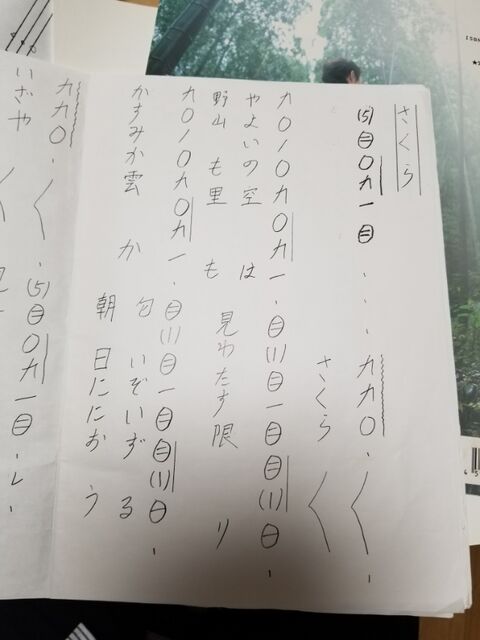 さくら
(5)㊀〇九一㊀、、、九九〇、〳〵、
さくら〳〵
九〇ノ〇九〇九一、㊀(1)㊀一㊀㊀(1)㊀、
やよいの空は
野山も里も 見わたす限り
九〇ノ〇九〇九一、㊀(1)㊀一㊀㊀(1)㊀、
かすみか雲か 匂いぞいずる
朝日ににおう
九九〇、〳〵、(5)㊀〇九一㊀、レ、
いざや〳〵